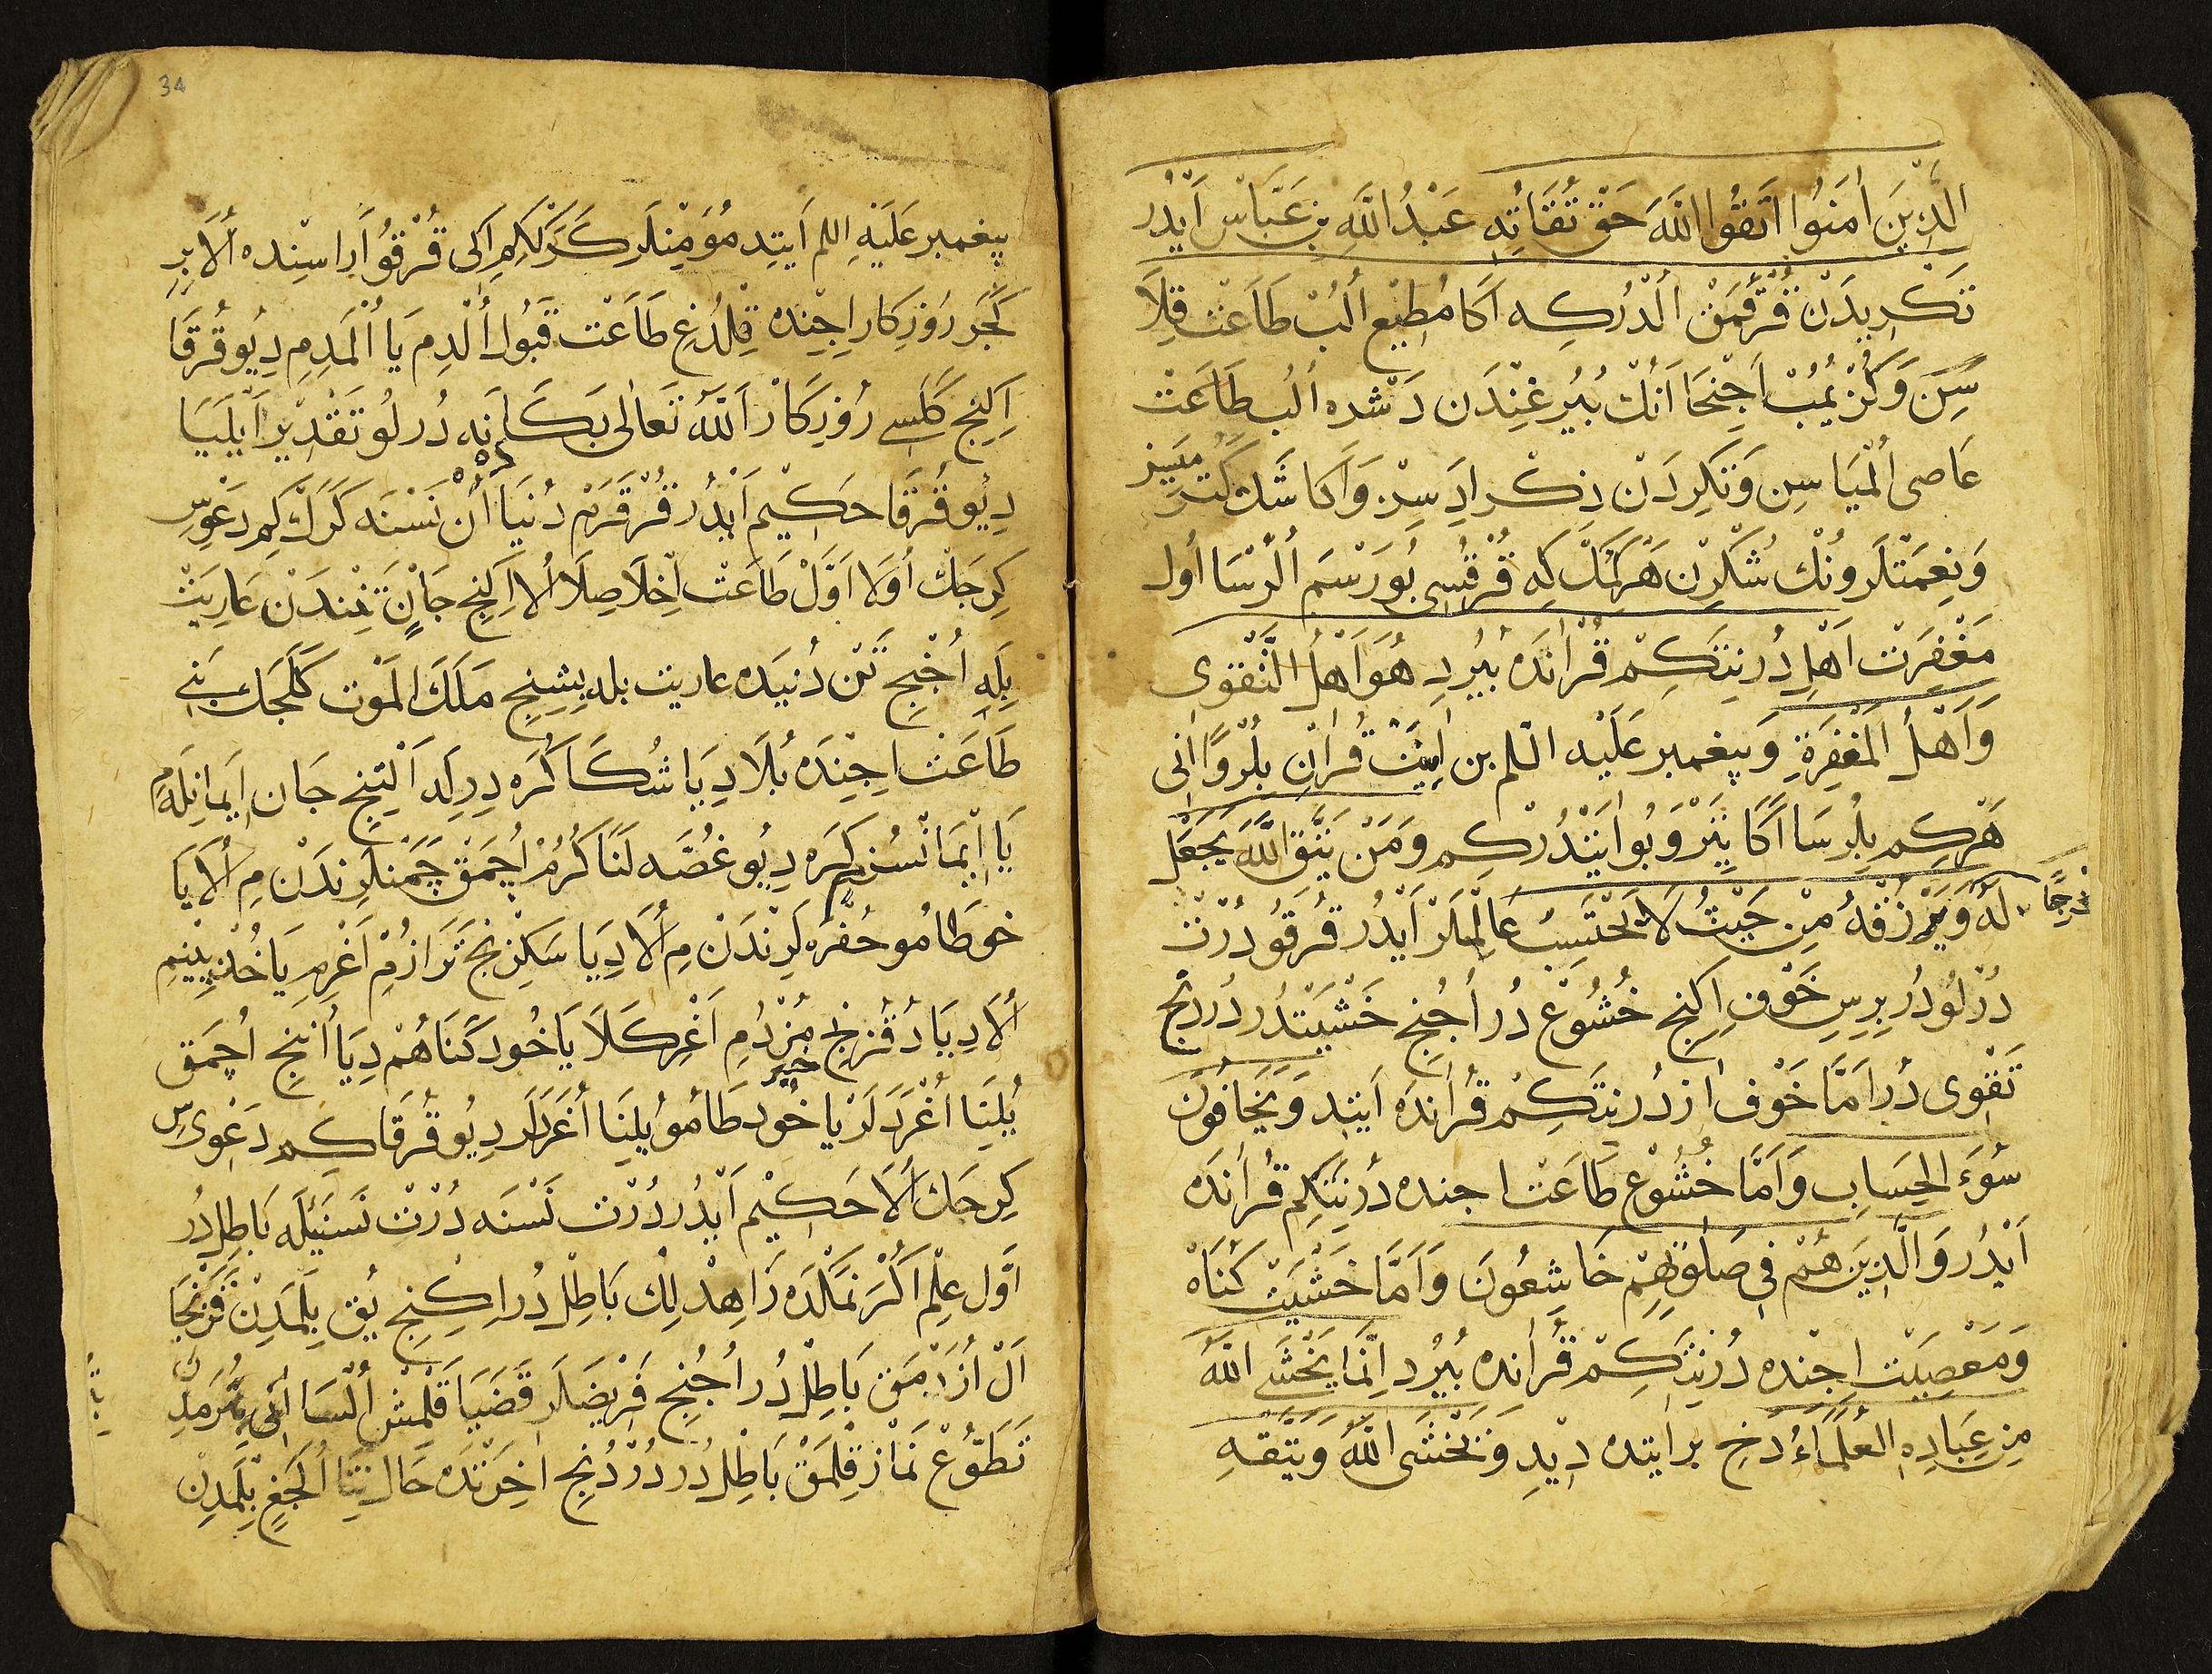 الَّذِينَ اٰمَنُوا اتَّقُوا اللّٰهَ حَقَّ تُقَاتِهِ عَبْدُ اللّٰهِ بن عَبَّاسْ اَيْدُر
تَكْرِيدَنْ قُرْقْمَقْ اُلْدُركِه اَكَا مُطِيع اُلُبْ طَاعَتْ قِلَا
سِنَ وَكُزْ يُمُبْ اَجِنْجَا اَنُكْ بُيُرغِنْدَن دَشْده اُلُب طَاعَتْ
عَاصِى اُلْمَيَاسِن وَتَكْرِدَنْ ذِكْر اِدَسِنْ وَاَكَا شَك كَتُرمَيَسِز
وَنِعْمَتْلَرونُكْ شُكْرِن هَركِمُكْ كِه قُرْقُسِى بُورَسْمَ اُلُرْسَا اُول
مَغْفِرَتْ اَهْلِدُر نِتَكِمْ قُرْاٰنْدَه بُيُردِ هُوَ اَهْلُ التَّقْوٰى
وَاَهْلُ الْمَغْفِرَةِ وَپيغمبر عَلَيْه السّلم بن اٰيَتْ قُرْاٰن بِلُرْوَ اَنِى
هَركِم بِلُرسَا اَكَا يَتَرْ وَبُو اٰيَتْدُرْكِم وَمَنْ يَتَّقِ اللّٰهَ يَجْعَلْ
لَهُ مَخْرَجًا وَيَرْزُقْهُ مِنْ حَيْثُ لَا يَحْتَسِبُ عَالِمْلَرْ اَيْدُر قُرقُو دُرْت
دُرْلُو دُر بِرِسِ خَوْف اِكِنْجِ خُشُوعْ دُر اُجُنْجِ خَشْيَتْدُر دُردُنْجِ
تَقْوٰى دُر اَمَّا خَوْف اٰزدُر نِتَكِمْ قُرْاٰنْدَه اَيتِد وَيَخَافُونَ
سُوۤءَ الْحِسَابِ وَاَمَّا خُشُوعْ طَاعَتْ اجنده دُر نِتَكِم قُرْاٰنْدَه
اَيْدُر وَالَّذِينَ هُمْ فِى صَلٰوتِهِمْ خَاشِعُونَ وَاَمَّا خَشْيَتْ كُنَاهْ
وَمَعْصِيَتْ اِجِنْده دُر نِتَكِمْ قُرْاٰنده بُيُرْد اِنَّمَا يَخْشَى اللّٰهَ
مِن عِبَادِهِ الْعُلَمٰۤاءُ دَخِ بر اٰيتده دِيْدِ وَيَخْشَى اللّٰهَ وَيَتَّقِهِ
34
پيغمبر عَلَيْهِ السلم اَيتِد مُؤمِنلَر كَرَكدِركِم اِكِى قُرْقُو اَراسِنْده اُلَا بِرِ
كَجَر رُوزِكَار اِجِنْده قِلدُغِ طَاعَتْ قَبُول اُلْدِم يَا اُلْمَدِم دِيُو قُرقَا
اِكِنْجِ كَلَسِى رُوزِكَارْ اَللّٰهُ تَعَالٰى بَكَا نَه دُرلُو تَقْدِير اَيْلَيَا
دِيُو قُرقَا حَكِيْم اَيْدُر قُرْقَرَمْ دُنْيَا اُون نَسْنَه كَرَك كِم دَعْوِسِ
كِرجَك اُولَا اَوَّلْ طَاعَتْ اِخْلَاصِلَا اُلَا اِكِنْجِ جَانِ تَنِنْدَنْ عَارِيَتْ
بِلَه اُجُنْجِ تَن دُنيَده عاريت بله بِشِنْجِ مَلَكَ الْمَوْت كَلَجَك بَنِى
طَاعَتْ اِجِنْدَه بُلَا دِيَا شُكَا كُرَه دِرِلَه اَلْتِنْجِ جَان اِيمانِلَه
يَا اِيْمَانْسُز كِرَه دِيُو غُصَّه لَنَا كُرُمْ اُچمَقْ چَمَنلَرِنْدَنْ مِ اُلَا يَا
خوطَامُو حُفْرَه لَرِنْدَنْ مِ اُلَا دِيَا سَكِزِنْجِ تَرَازُمْ اَغِرمِ يَا خُدْ يِيْنِمِ
اُلَا دِيَا دُقُزنْجِ مُزْدُمِ اَغِر كَلَا يَا خُود كُنَاهُمْ دِيَا اُننِجِ اُچمَق
يُلِنَا اُغْرَدَلَرْ يا خُود طَامُو يُلِنَا اُغَرَدَلَر دِيُو قُرقَا كِم دَعْوِىسِ
كِرجَك اُلَا حَكِيْم اَيْدُر دُرْت نَسْنَه دُرْتْ نَسْنَيْلَه بَاطِلدُر
اَوَّل عِلْم اُكْرَنْمَكْدَه زَاهِدْلِك بَاطِلدُر اِكِنْجِ يُق بِلَمَدِنْ قَزَنْجَا
اَلْ اُزَدْمَق بَاطِلدُر اُجُنْجِ فَرِيضَلَر قَضَيَا قَلْمِشْ اُلْسَا اَنِى
تَطَوُّعْ نَمَازْ قِلْمَقْ بَاطِلدُر دُرْدُنْجِ اٰخِرَتْدَه حَال نِتَا اُلَجَغِن بِلَمَدِنْ